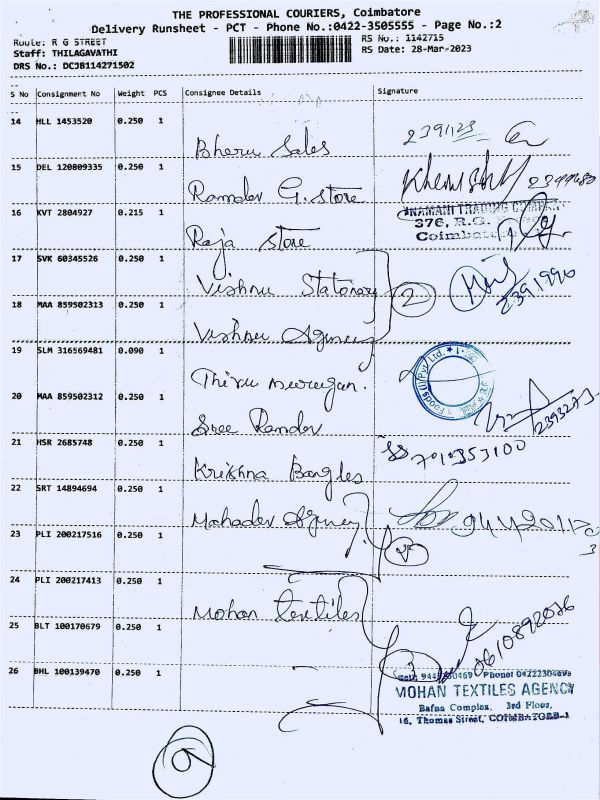 THE PROFESSIONAL COURIERS, Coimbatore
Delivery Runsheet - PCT - Phone No.:0422-3505555 - Page No.:2
Route: R G STREET
RS No.: 1142715
Staff: THILAGAVATHI
RS Date: 28-Mar-2023
DRS No.: DCJB114271502
S No Consignment No Weight PCS Consignee Details Signature
14 HLL 1453520 0.250 1
Bheru Sales
15 DEL 120809335 0.250 1
Ramdev G. Store
16 KVT 2804927 0.215 1
376, R.G.
Raja Store
17 SVK 60345526 0.250 1
Vishnu Stationary 2 2391990
18 MAA 859502313 0.250 1
Vishnu Agency
19 SLM 316569481 0.090 1
Foods (I) Pvt. Ltd.
Thiru murugan.
20 MAA 859502312 0.250 1
Sree Ramdev
21 HSR 2685748 0.250 1
Krishna Bangles
22 SRT 14894694 0.250 1
Mahadev Agency
23 PLI 200217516 0.250 1
24 PLI 200217413 0.250 1
Mohan textiles
25 BLT 100170679 0.250 1
26 BHL 100139470 0.250 1
3
MOHAN TEXTILES AGENCY
Bafna Complex, 3rd Floor,
16, Thomas Street, COIMBATORE-1
9